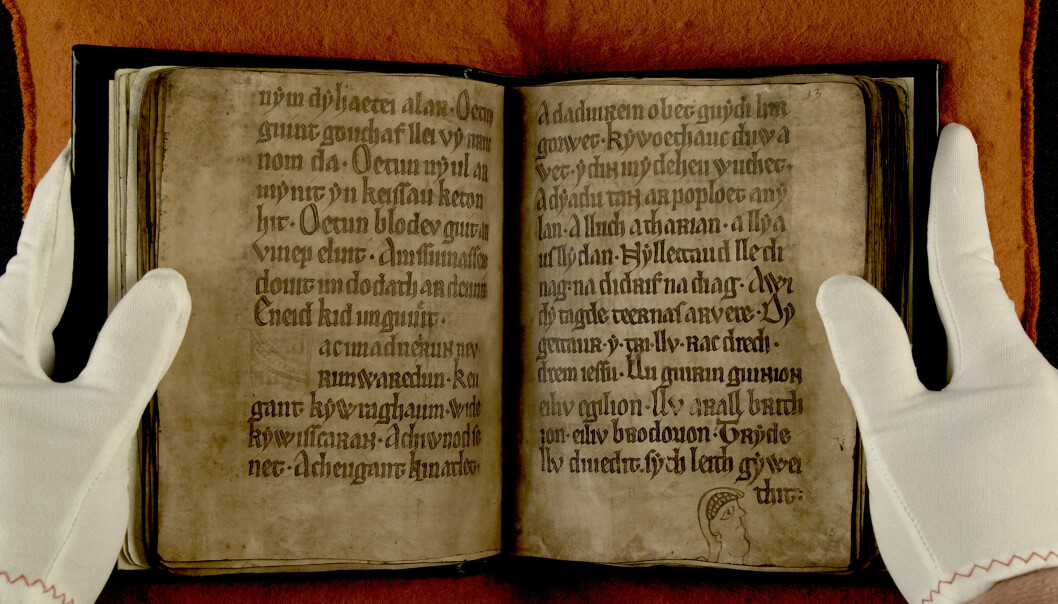 nẏm dẏhaetei alar. Oetun
guint gouchaf llei vẏ
nom da. Oetun nẏ ul ar
mẏnit ẏn keissau keton
hit. Oetun blodev guit ar
vinep elint.
doutt im dodath ar deurin
Eneid kid im guneit.
ac im a dneirun nev
rim waredun. Ken
gant kẏwraghaun. wide
kẏwisscaran. Achiwnod
net. Acheugant kinatlet.
13
A daduirein o bet guẏdi hir
gorwet. Rẏ voethauc duw a
vet. ẏdin mẏ deheu wuchet.
A dẏadu tan ar poploet anẏ
lan. A lluch a tharian. a llẏa
us llẏdan. Nẏ llettaud lle di
nag. na didrif na diag. A wi
dẏ tagde teernas arvere. Dẏ
gettaur. ẏ. tri. llv. rac drech.
drem iessu. Llu guirin guinion
eiliv egilion. Llv arall brith
ion. eiliv brodorion. Trẏde
llv diuedit. sẏth leith gẏwei
thit: